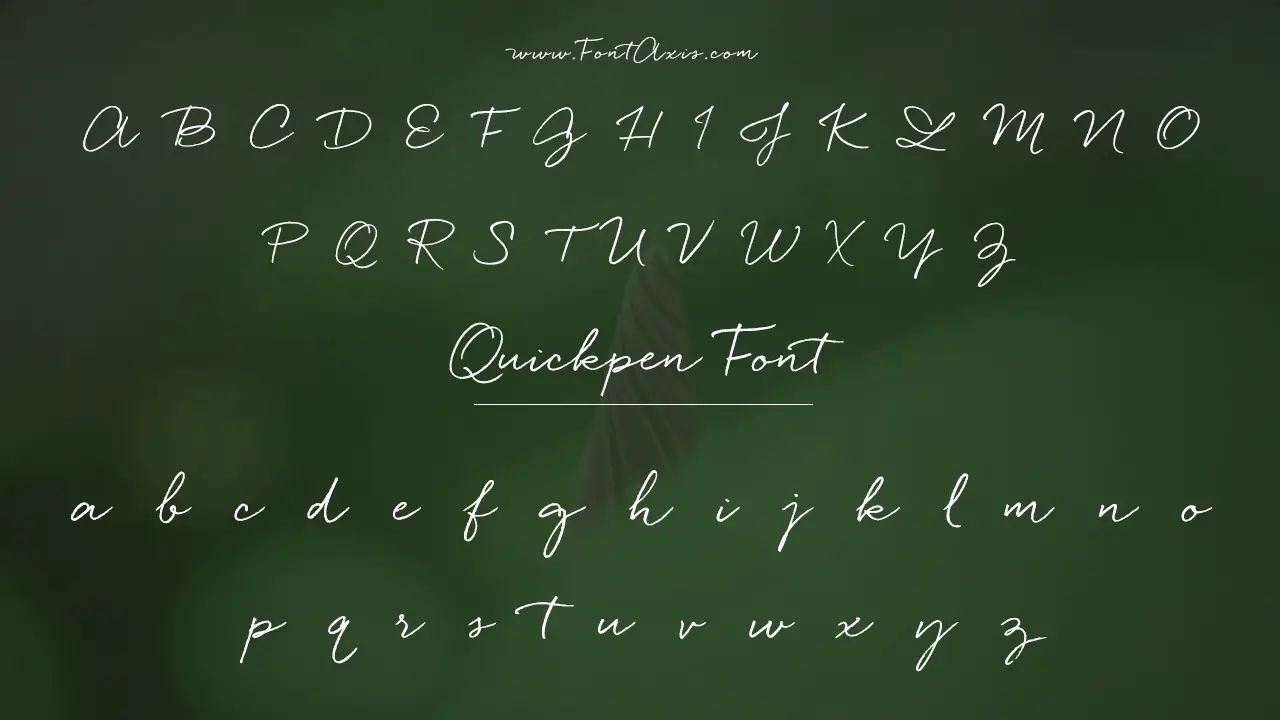 www.FontAxis.com
A B C D E F G H I J K L M N O
P Q R S T U V W X Y Z
Quickpen Font
a b c d e f g h i j k l m n o
p q r s t u v w x y z